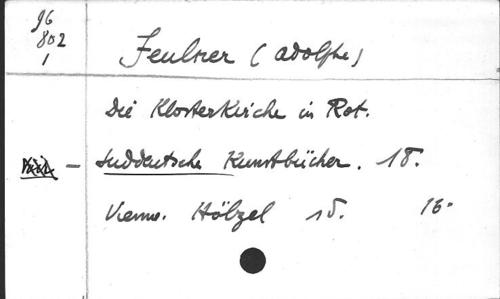 J6
802
1
Feulner (Adolphe)
Die Klosterkirche in Rot.
— Süddeutsche Kunstbücher. 18.
Vienne. Hölzel sd. 16°